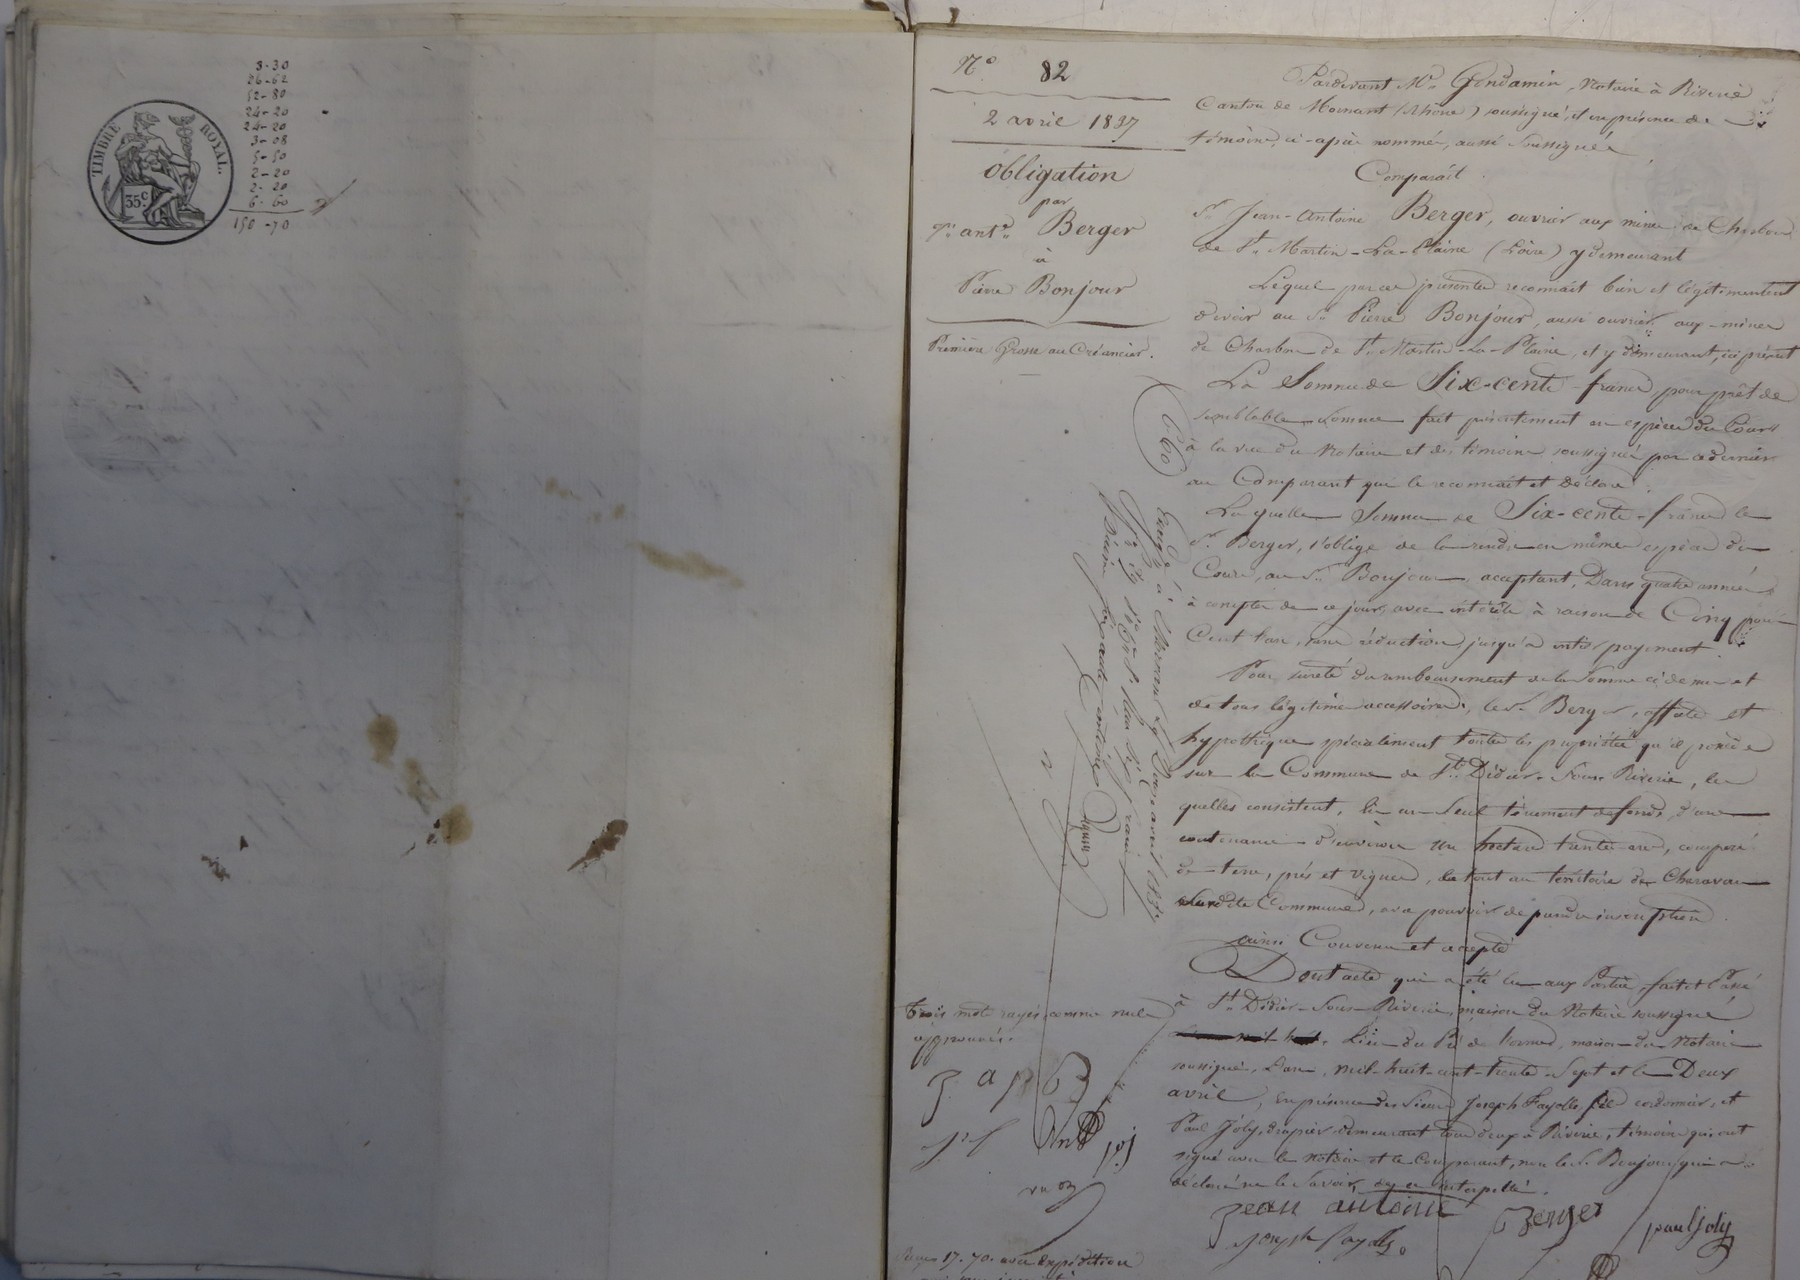 TIMBRE ROYAL
35 c.
3-30
26-62
52-80
24-20
24-20
3-08
5-50
2-20
2-20
6-60
150-70
N° 82
2 avril 1837
Obligation
par
Jn antne Berger
à
Pierre Bonjour
Première Grosse au Créancier.
Pardevant Me Gindamin, Notaire à Riverie
Canton de Mornant (Rhône) soussigné, et en présence de
témoins ci-après nommés, aussi soussignés
Comparaît
Sr Jean-Antoine Berger, ouvrier aux mines de Charbon
de St Martin-La-Plaine (Loire) y demeurant
Lequel par ces présentes reconnaît bien et légitimement
devoir au Sr Pierre Bonjour, aussi ouvrier aux mines
de Charbon de St Martin-La-Plaine, et y demeurant, ici présent
La Somme de Six-cents-francs, pour prêt de
semblable somme fait présentement en espèces du Cours
à la vue du Notaire et des témoins soussignés par ce dernier
au Comparant qui le reconnait et déclare
6.60
Laquelle Somme de Six-cents-francs le
Sr Berger, s'oblige de la rendre en mêmes espèces du
Cours, au Sr Bonjour, acceptant, Dans quatre années
à compter de ce jour, avec intérêts à raison de Cinq pour
Cent l'an, sans réduction, jusqu'à entier payement
Pour sureté du remboursement de la Somme ci-dessus et
de tous légitimes accessoires, le Sr Berger, affecte et
hypothèque spécialement toutes les propriétés qu'il possède
sur la Commune de St Didier-Sous-Riverie, les
quelles consistent, en un Seul ténement de fonds, d'une
contenance d'environ Un hectare trente ares, composé
de terre, prés et vignes, le tout au territoire de Charavan
susdite Commune, avec pouvoir de prendre inscription
ainsi Convenu et accepté
Dont acte qui a été lu aux Parties, fait et Passé
à St Didier-Sous-Riverie, maison du Notaire soussigné
Lieu du Pré de, maison du Notaire
soussigné, L'an, mil-huit-cent-trente-Sept et le Deux
avril, En présence des Sieurs Joseph Fayolle, cordonnier, et
Paul Joly, drapier demeurant tous deux à Riverie, témoins qui ont
signé avec le Notaire et le Comparant, non le Sr Bonjour qui a
déclaré ne le Savoir, de ce interpellé.
Trois mots rayés comme nuls
approuvés.
j. a B
J. f
p. j
jean antoine Berger
paul joly
joseph fayolle
Enregé à Mornant Le Douze avril 1837